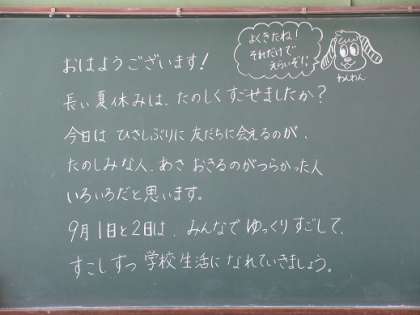 よくきたね!
それだけで
えらいぞ!!
わんわん
おはようございます!
長い夏休みは、たのしくすごせましたか?
今日は ひさしぶりに 友だちに会えるのが、
たのしみな人、あさ おきるのがつらかった人
いろいろだと思います。
9月1日と2日は、みんなで ゆっくり すごして、
すこしずつ 学校生活に なれていきましょう。